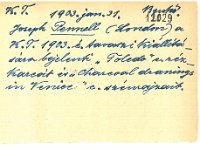 K.T. 1903. jan. 31. Benső
12029
Joseph Pennell (London) a
K.T. 1903. é. tavaszi kiállítá-
sára bejelenti „Toledo” c. réz-
karcát és „Charcoal drawings
in Venice” c. szénrajzait.